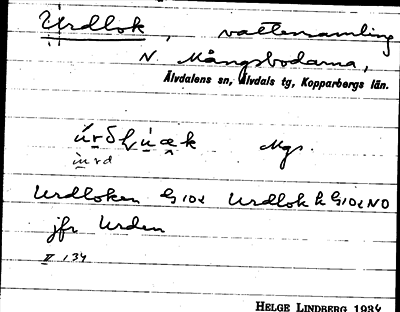 Urdlok, vattensamling
N. Mångsbodarna,
Älvdalens sn, Älvdals tg, Kopparbergs län.
Mgs.
Urdloken G10x Urdlok k G10x NO
jfr Urden
II 134
HELGE LINDBERG 1934